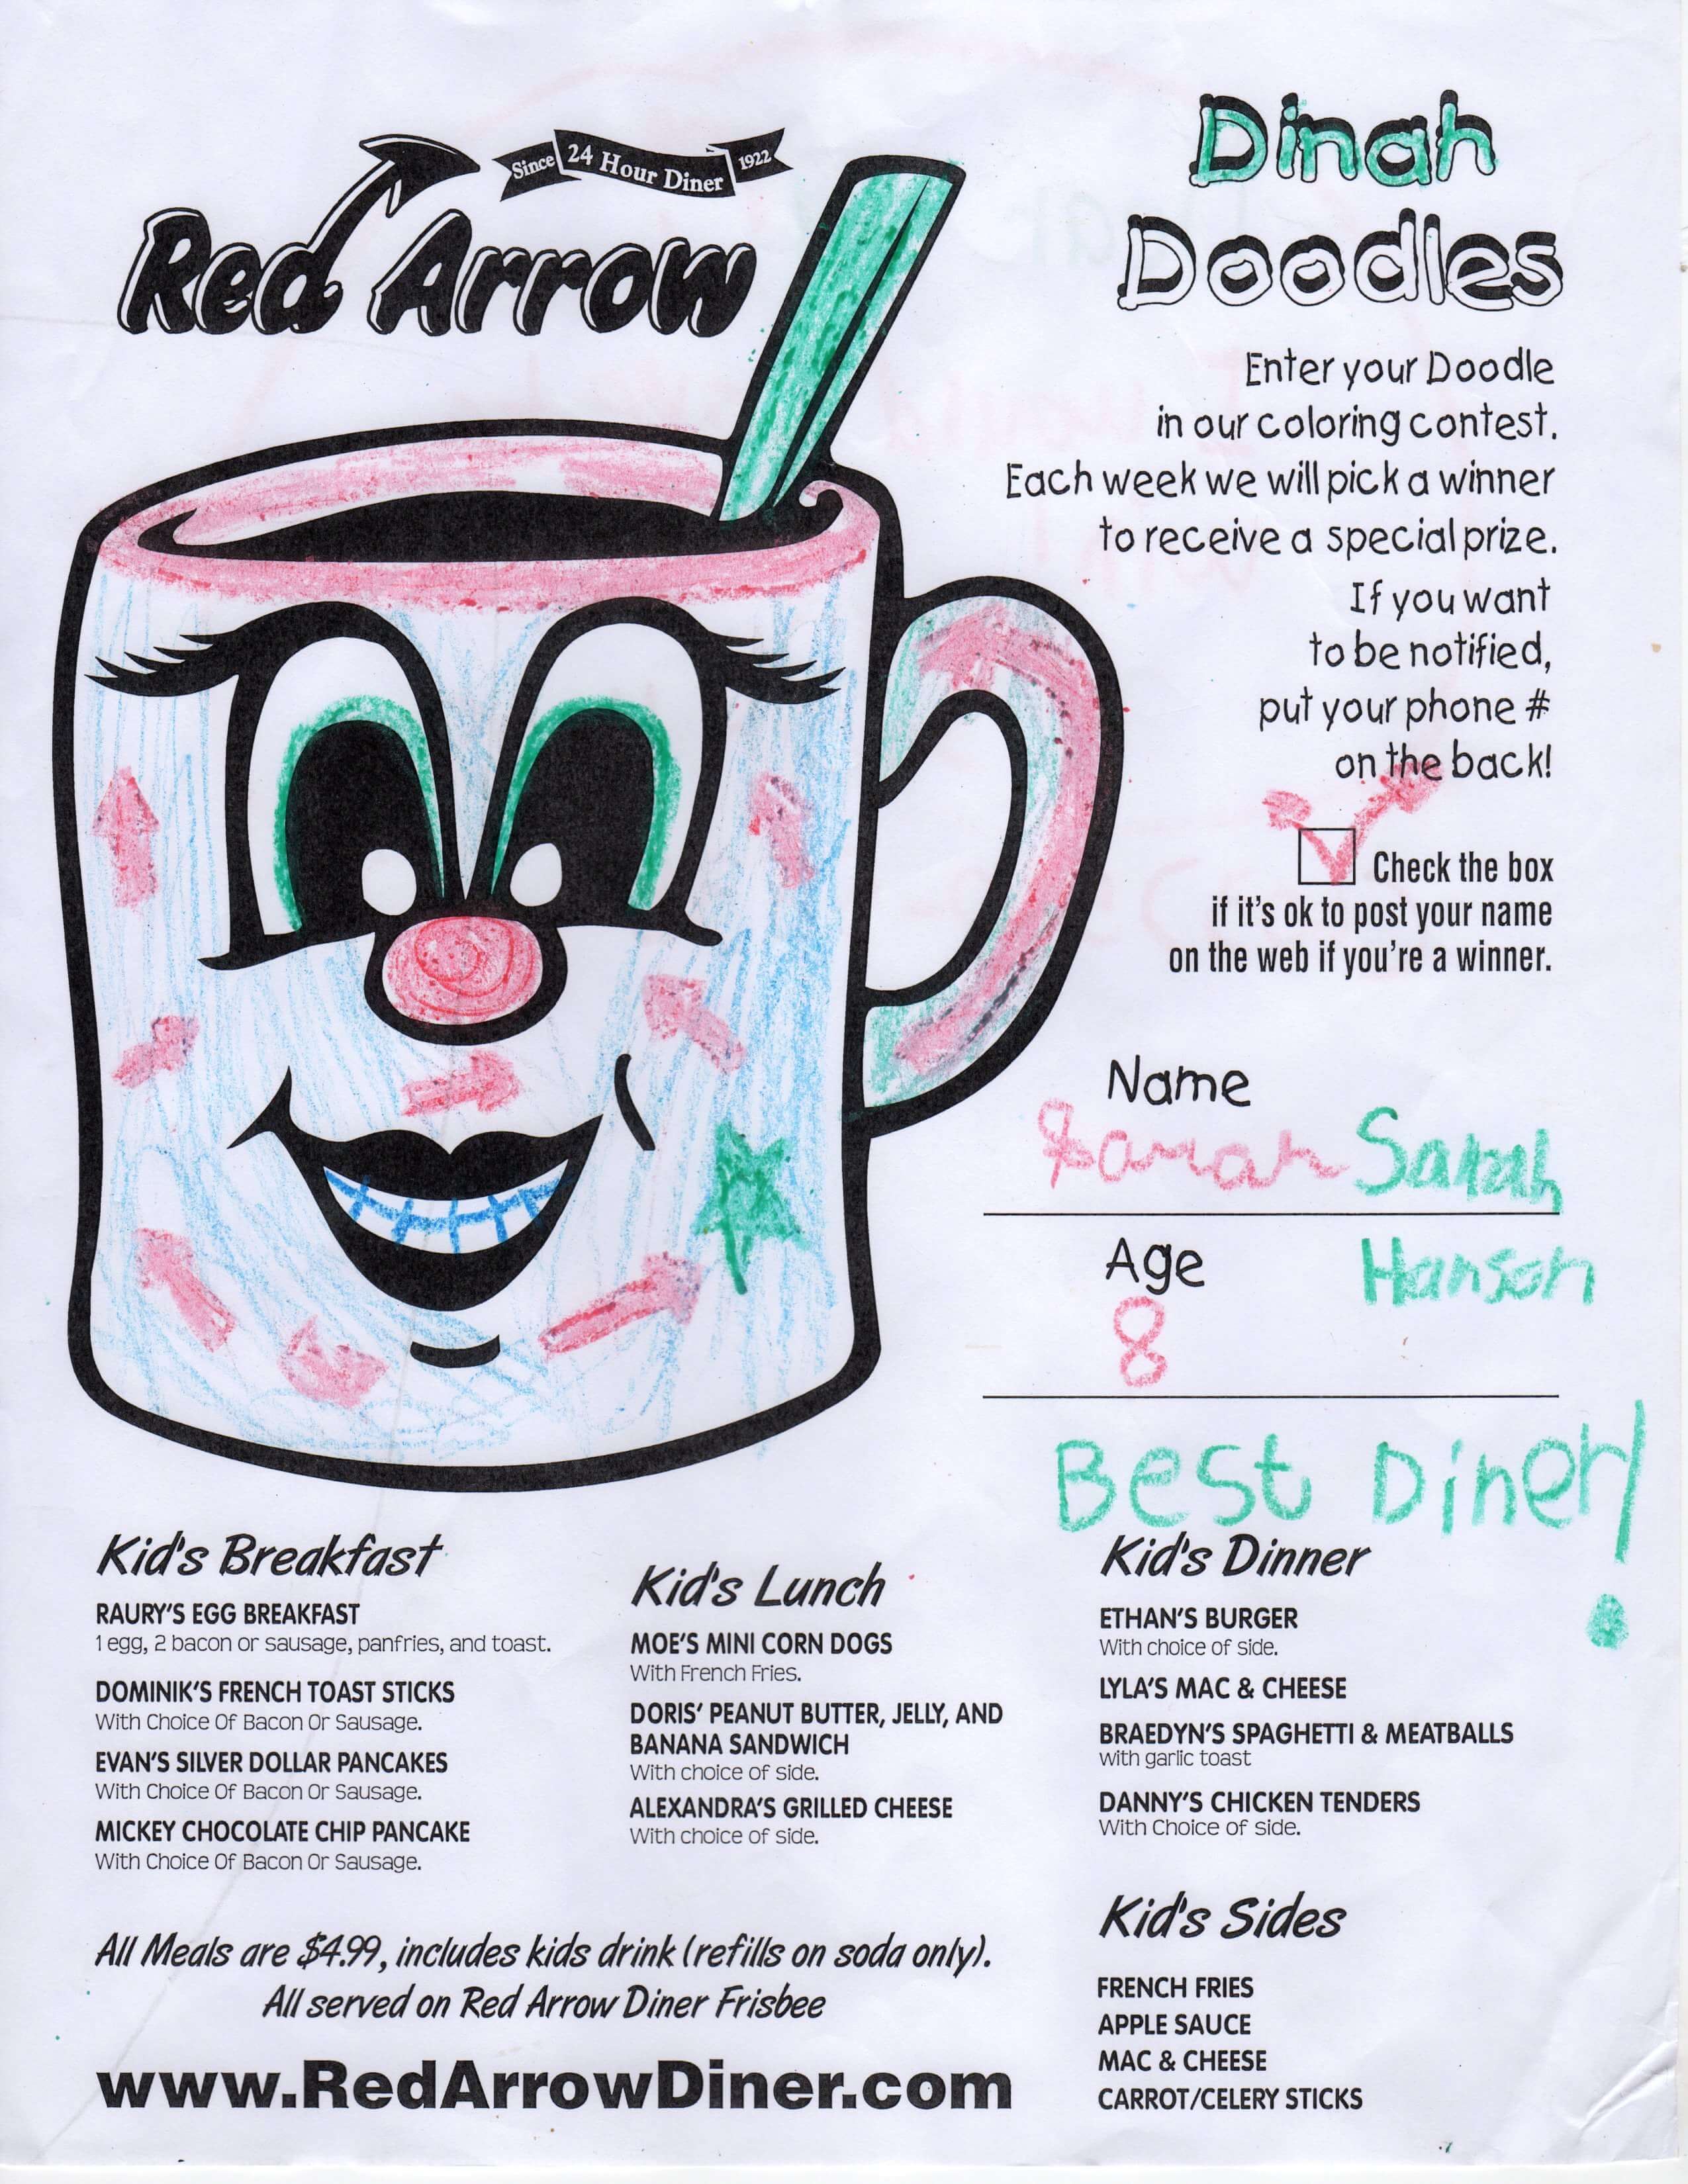 Since 24 Hour Diner 1922
Red Arrow
Dinah
Doodles
Enter your Doodle
in our coloring contest.
Each week we will pick a winner
to receive a special prize.
If you want
to be notified,
put your phone #
on the back!
Check the box
if it's ok to post your name
on the web if you're a winner.
Name
Sarah Sarah
Age
Hanson
8
Best Diner!
Kid's Breakfast
RAURY'S EGG BREAKFAST
1 egg, 2 bacon or sausage, panfries, and toast.
DOMINIK'S FRENCH TOAST STICKS
With Choice Of Bacon Or Sausage.
EVAN'S SILVER DOLLAR PANCAKES
With Choice Of Bacon Or Sausage.
MICKEY CHOCOLATE CHIP PANCAKE
With Choice Of Bacon Or Sausage.
Kid's Lunch
MOE'S MINI CORN DOGS
With French Fries.
DORIS' PEANUT BUTTER, JELLY, AND
BANANA SANDWICH
With choice of side.
ALEXANDRA'S GRILLED CHEESE
With choice of side.
Kid's Dinner
ETHAN'S BURGER
With choice of side.
LYLA'S MAC & CHEESE
BRAEDYN'S SPAGHETTI & MEATBALLS
with garlic toast
DANNY'S CHICKEN TENDERS
With Choice of side.
Kid's Sides
FRENCH FRIES
APPLE SAUCE
MAC & CHEESE
CARROT/CELERY STICKS
All Meals are $4.99, includes kids drink (refills on soda only).
All served on Red Arrow Diner Frisbee
www.RedArrowDiner.com